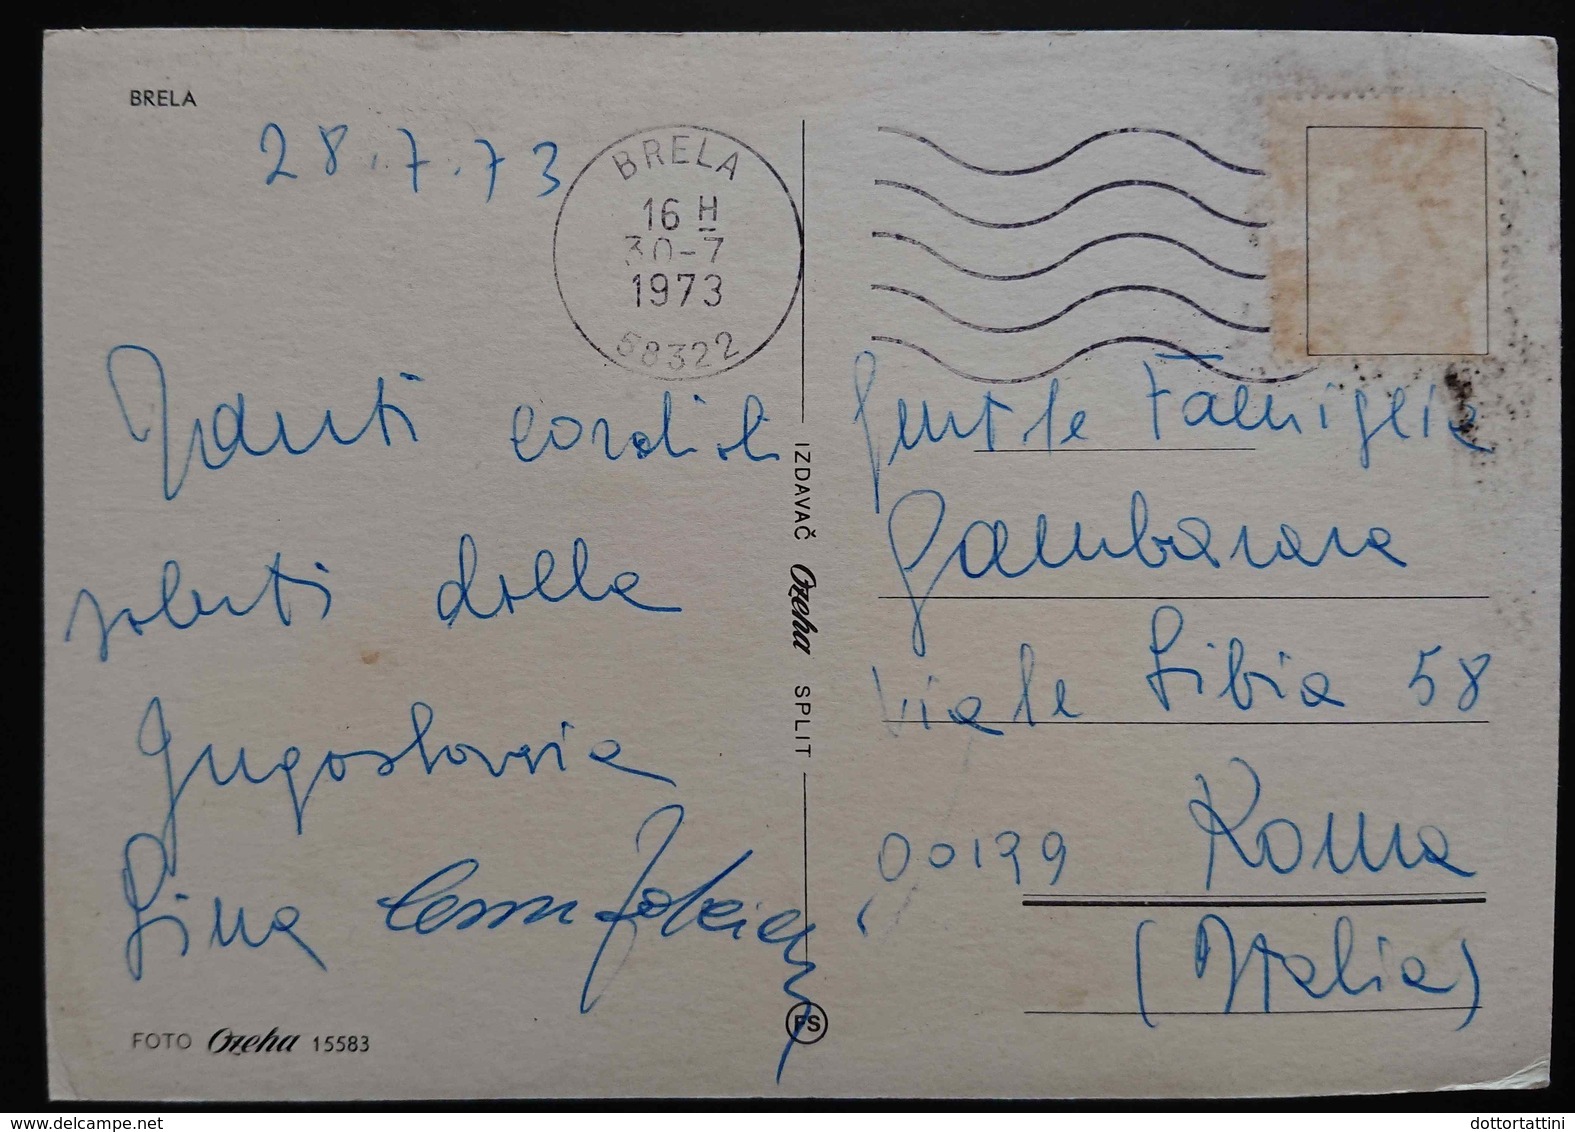 BRELA
28.7.73
BRELA
16 H
30-7
1973
58322
Tanti cordiali
saluti dalla
Jugoslavia
Lina
FOTO Ozeha 15583
IZDAVAČ Ozeha SPLIT
FS
Gentile Famiglia
Gambarara
Viale Libia 58
00199 Roma
(Italia)
dottortattini